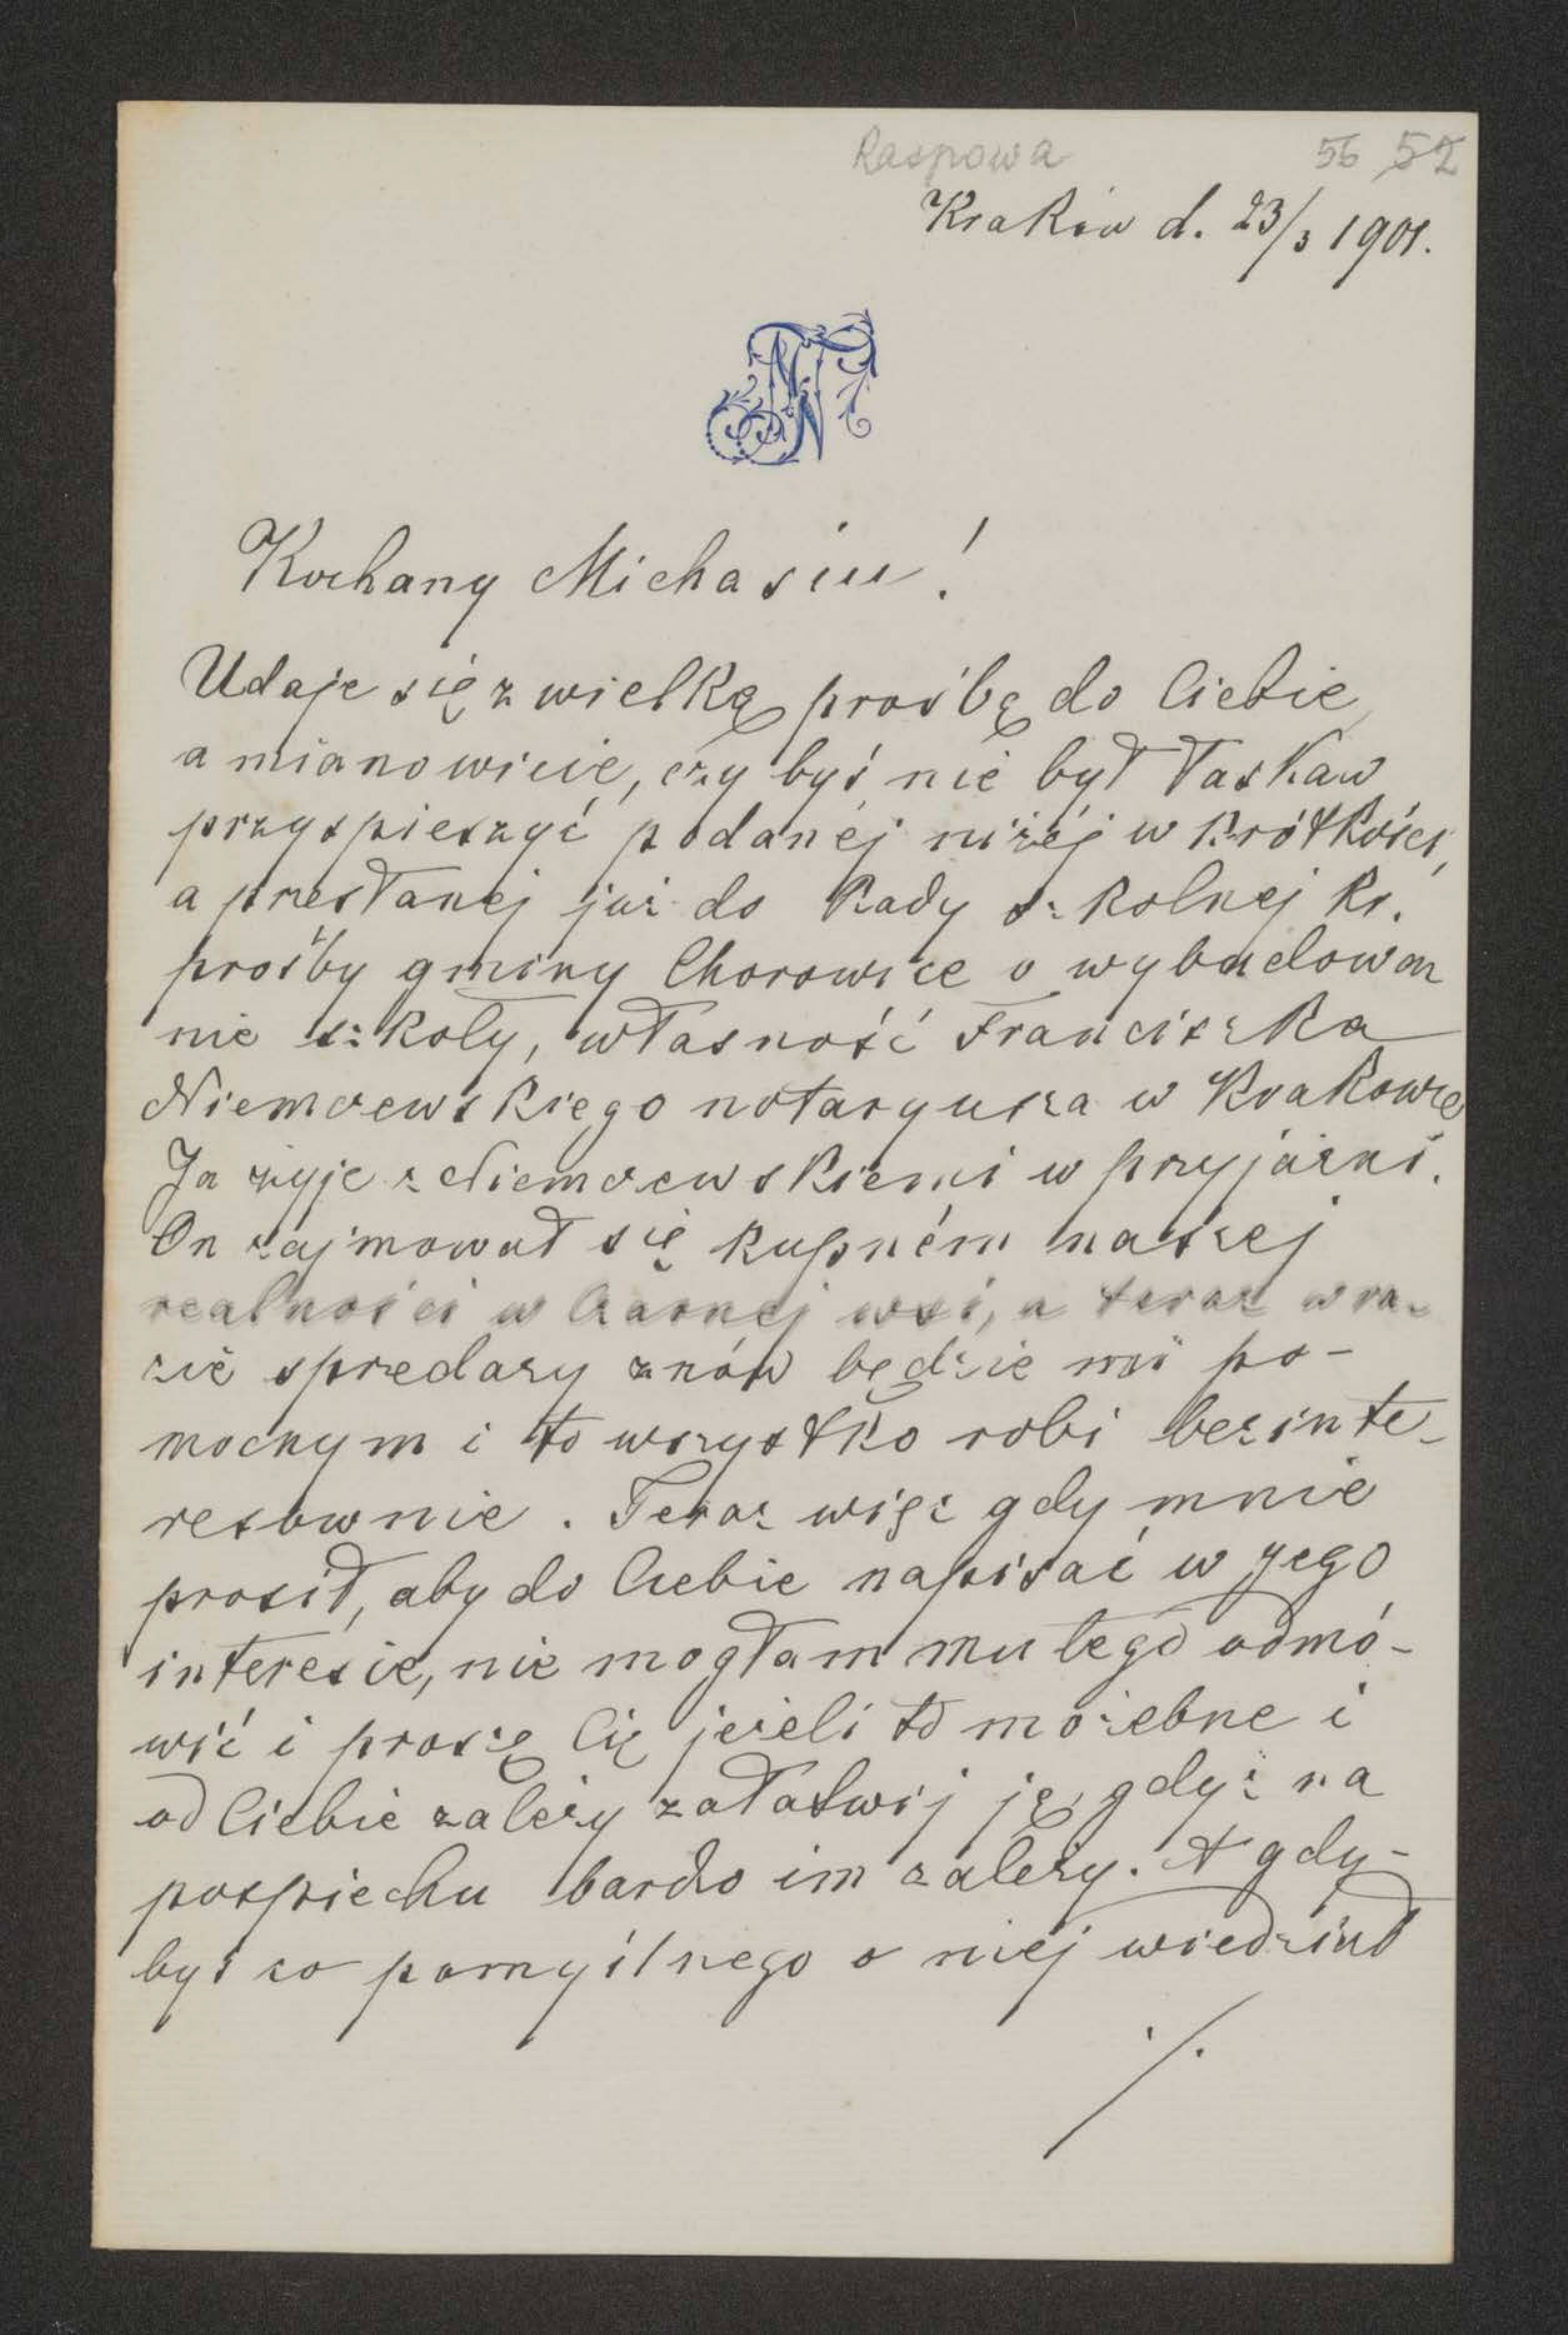 Raspowa 56 52
Kraków d. 23/3 1901.
Kochany Michasiu!
Udaje się z wielką prośbą do Ciebie,
a mianowicie, czy byś nie był łaskaw
przyspieszyć podanéj niżéj w krótkości,
a przesłanej już do Rady szkolnej kr.
prośby gminy Chorowice o wybudowa
nie szkoły, własność Franciszka
Niemczewskiego notaryusza w Krakowie
Ja żyje z Niemczewskiemi w przyjaźni.
On zajmował się kupném naszej
realności w Czarnej wsi, a teraz w ra-
zie spredazy znów będzie mi po-
mocnym i to wszystko robi bezinte-
resownie. Teraz więc gdy mnie
prosił, aby do Ciebie napisać w jego
interesie, nie mogłam mu tego odmó-
wić i proszę Cię jeżeli to możebne i
od Ciebie zależy załatwij ję, gdyż na
pospiechu bardzo im zależy. A gdy-
byś co pomyślnego o niéj wiedział
./.